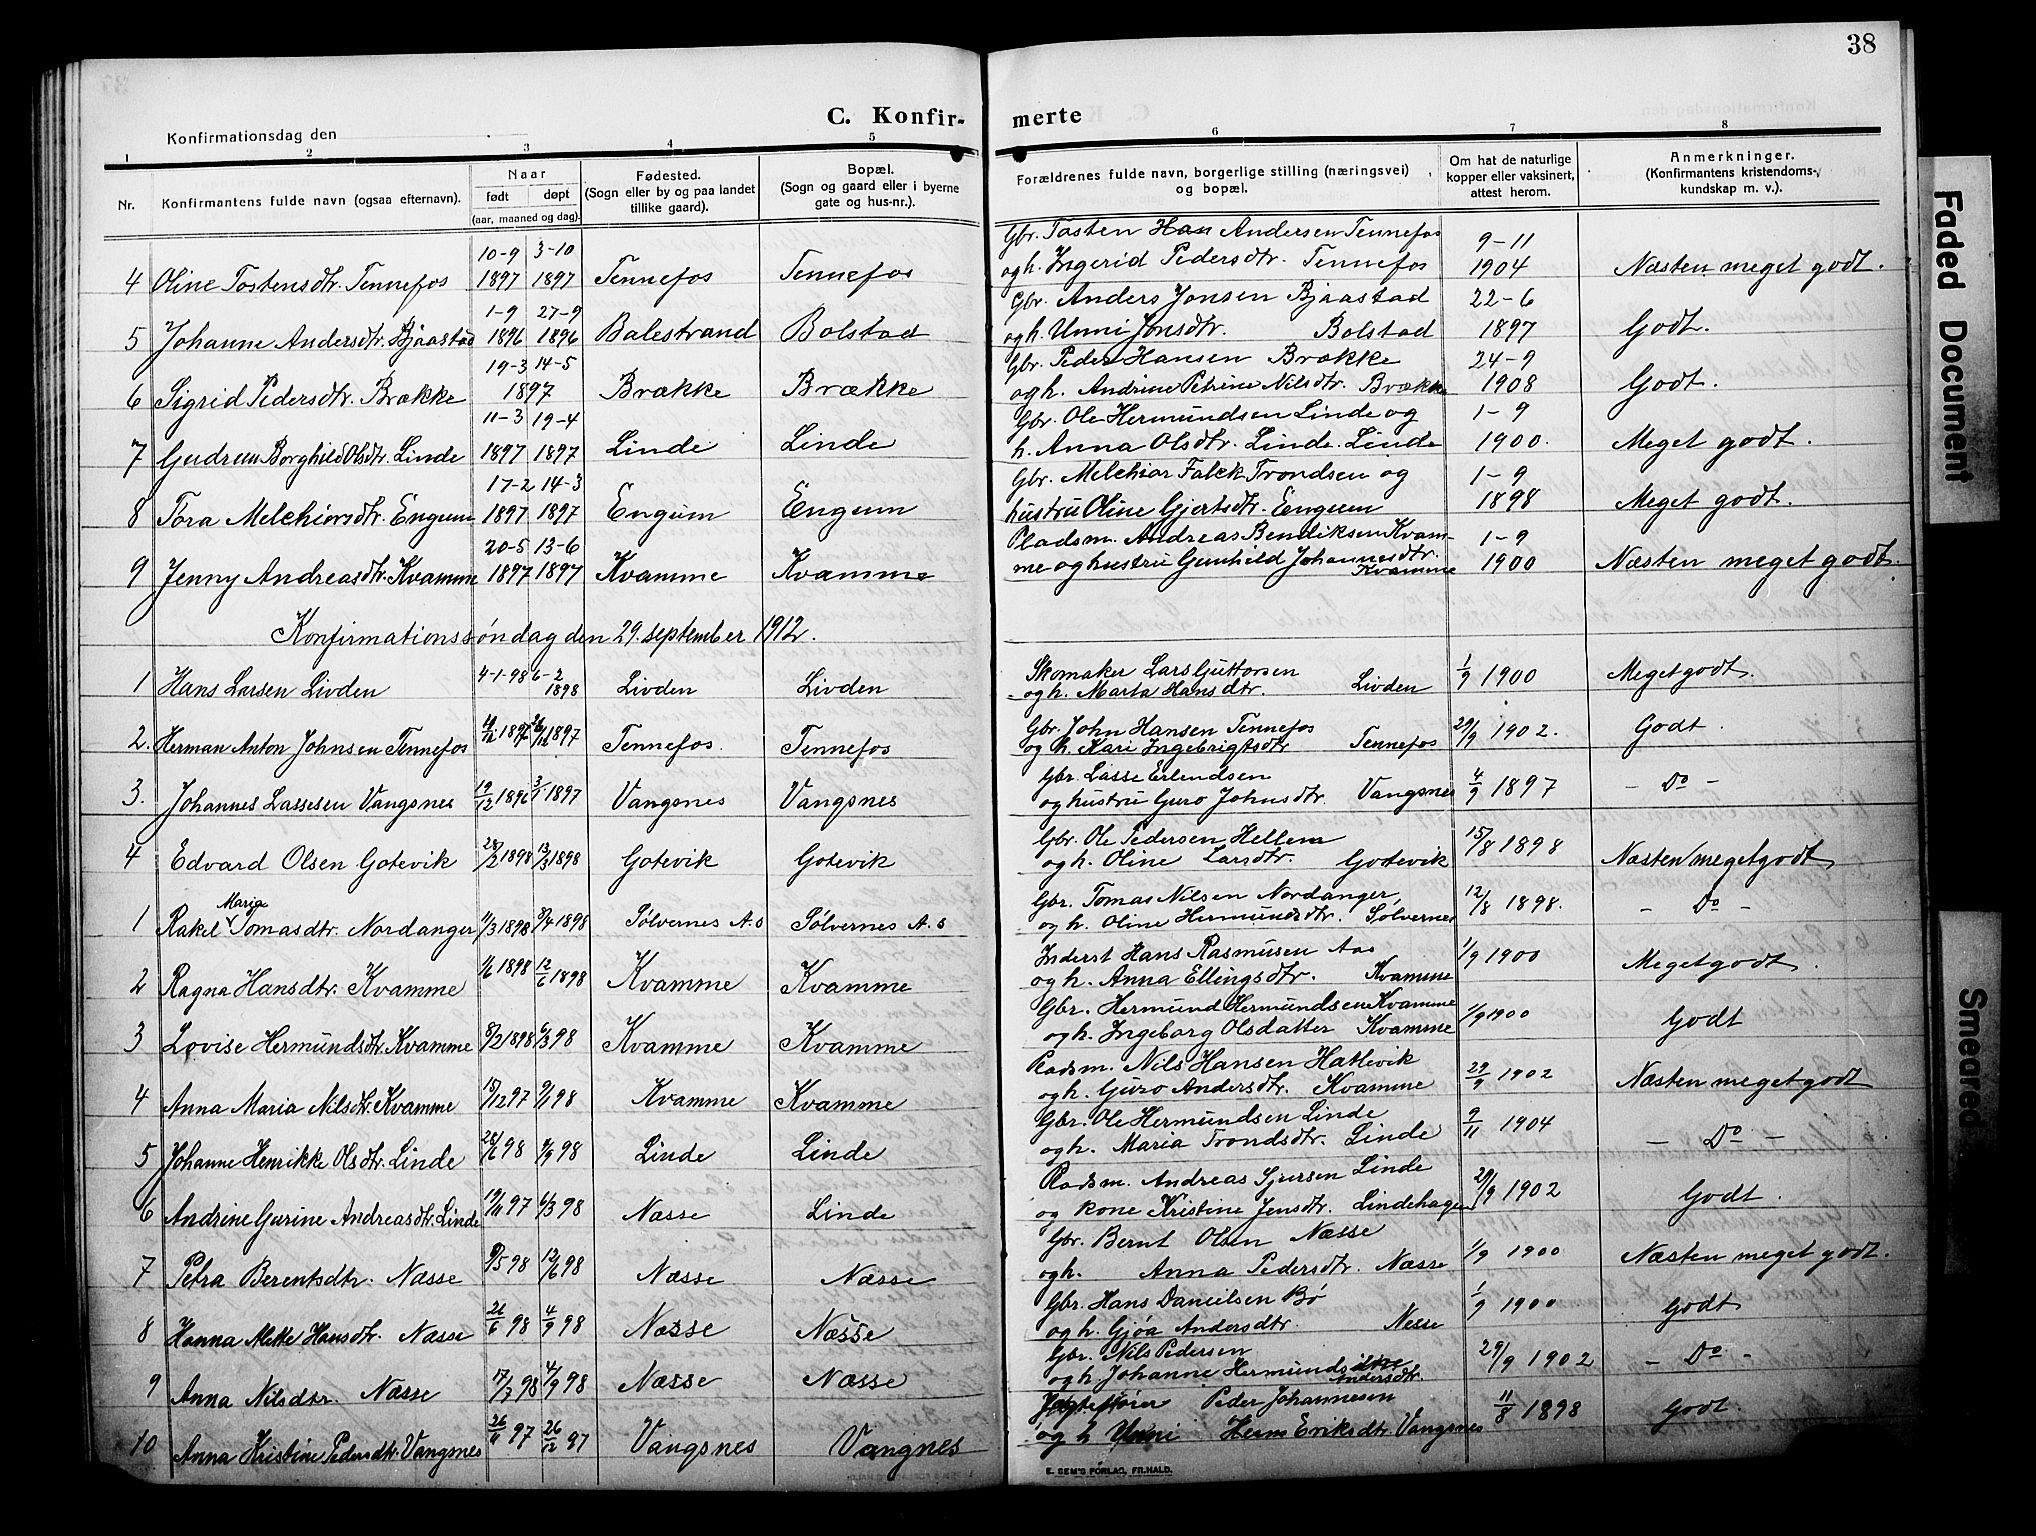 38
C. Konfir-
merte
Konfirmationsdag den
1 2 3 4 5 6 7 8
Nr.
Konfirmantens fulde navn (ogsaa efternavn).
Naar
født døpt
(aar, maaned og dag).
Fødested.
(Sogn eller by og paa landet
tillike gaard).
Bopæl.
(Sogn og gaard eller i byerne
gate og hus-nr.).
Forældrenes fulde navn, borgerlige stilling (næringsvei)
og bopæl.
Om hat de naturlige
kopper eller vaksinert,
attest herom.
Anmerkninger.
(Konfirmantens kristendoms-
kundskap m. v.).
10-9 3-10 Gbr. Tosten Han Andersen Tennefos 9-11
4 Oline Tostensdtr. Tennefos 1897 1897 Tennefos Tennefos og h. Ingerid Pedersdtr. Tennefos 1904 Næsten meget godt.
1-9 27-9 Gbr. Anders Jonsen Bjaastad 22-6
5 Johanne Andersdtr. Bjaastad 1896 1896 Balestrand Bolstad og h. Unni Jonsdtr. Bolstad 1897 Godt.
19-3 14-5 Gbr. Peder Hansen Brække 24-9
6 Sigrid Pedersdtr. Brække 1897 Brække Brække og h. Andrine Petrine Nilsdtr. Brække 1908 Godt.
11-3 19-4 Gbr. Ole Hermundsen Linde og 1-9
7 Gudrun Borghild Olsdtr. Linde 1897 1897 Linde Linde h. Anna Olsdtr. Linde. Linde 1900. Meget godt.
17-2 14-3 Gbr. Melchior Falck Trondsen og 1-9
8 Tora Melchiorsdtr. Engum 1897 1897 Engum Engum hustru Oline Gjertsdtr. Engum 1898 Meget godt.
20-5 13-6 Pladsm. Andreas Bendiksen Kvam- 1-9
9 Jenny Andreasdtr. Kvamme 1897 1897 Kvamme Kvamme me og hustru Gunhild Johannesdtr. 1900 Næsten meget godt.
Kvamme
Konfirmationssøndag den 29. september 1912.
Skomaker Lars Guttorsen
1 Hans Larsen Livden 4-1-98 6-2 1898 Livden Livden og h. Marta Hansdtr. Livden 1/9 1900 Meget godt.
Gbr. John Hansen Tennefos
2. Herman Anton Johnsen Tennefos 1897 1897 Tennefos. Tennefos og h. Kari Ingebrigtsdtr Tennefos 29/9 1902. Godt.
Gbr. Lasse Erlendsen
3. Johannes Lassesen Vangsnes 19/12 1896 3/1 1897 Vangsnes Vangsnes og hustru Guro Johnsdtr. Vangsnes 4/9 1897 - Do -
Gbr. Ole Pedersen Hellem
4 Edvard Olsen Gotevik 28/2 1898 13/3 1898 Gotevik Gotevik og h. Oline Larsdtr. Gotevik 15/8 1898 Næsten meget godt
Maria Gbr. Tomas Nilsen Nordanger,
1 Rakel Tomasdtr. Nordanger 11/3 1898 8/4 1898 Sølvernes A.s Sølvernes A.s og h. Oline Hermundsdtr. Solvernes 12/8 1898. - Do -
Inderst Hans Rasmusen Aas
2 Ragna Hansdtr. Kvamme 1/6 1898 12/6 1898 Kvamme Kvamme og h. Anna Ellingsdtr. Kvamme 1/9 1900 Meget godt.
Gbr. Hermund Hermundsen Kvamme
3 Lovise Hermundsdtr. Kvamme 8/2 1898 6/3 98 Kvamme Kvamme og h. Ingeborg Olsdatter Kvamme 1/9 1900 Godt
Pladsm. Nils Hansen Hatlevik
4 Anna Maria Nilsdtr. Kvamme 15/12 97 9/1 98 Kvamme Kvamme og h. Guro Andersdtr. Kvamme 29/9 1902 Næsten meget godt
Gbr. Ole Hermundsen Linde
5 Johanne Henrikke Olsdtr. Linde 98 4/9 98 Linde Linde og h. Maria Trondsdtr. Linde 9/11 1904 - Do -
Pladsm. Andreas Sjursen Linde
6 Andrine Gurine Andreasdtr. Linde 19/11 97 6/3 98 Næsse Linde og kone Kristine Jensdtr. Lindehagen 29/9 1902 Godt.
Gbr. Bernt Olsen Næsse
7 Petra Berentsdtr. Næsse 9/5 98 12/6 98 Næsse Næsse og h. Anna Pedersdtr. Næsse 1/9 1900 Næsten meget godt.
Gbr. Hans Danielsen Bø
8 Hanna Mette Hansdtr. Næsse 26/6 98 4/9 98 Næsse Næsse og h. Gjøa Andersdtr. Nesse 1/9 1900 Godt
Gbr. Nils Pedersen
9 Anna Nilsdtr. Næsse 17/7 98 4/9 98 Næsse Næsse og h. Johanne Hermunds Andersdtr 29/9 1902 - Do -
Jægtefører Peder Johannesen
10 Anna Kristine Pedersdtr. Vangsnes 26/11 97 26/12 97 Vangsnes Vangnes og h Unni Herms Eriksdtr Vangsnes 11/8 1898 Godt.
E. SEM'S FORLAG, FR.HALD.
Faded Document
Smeared